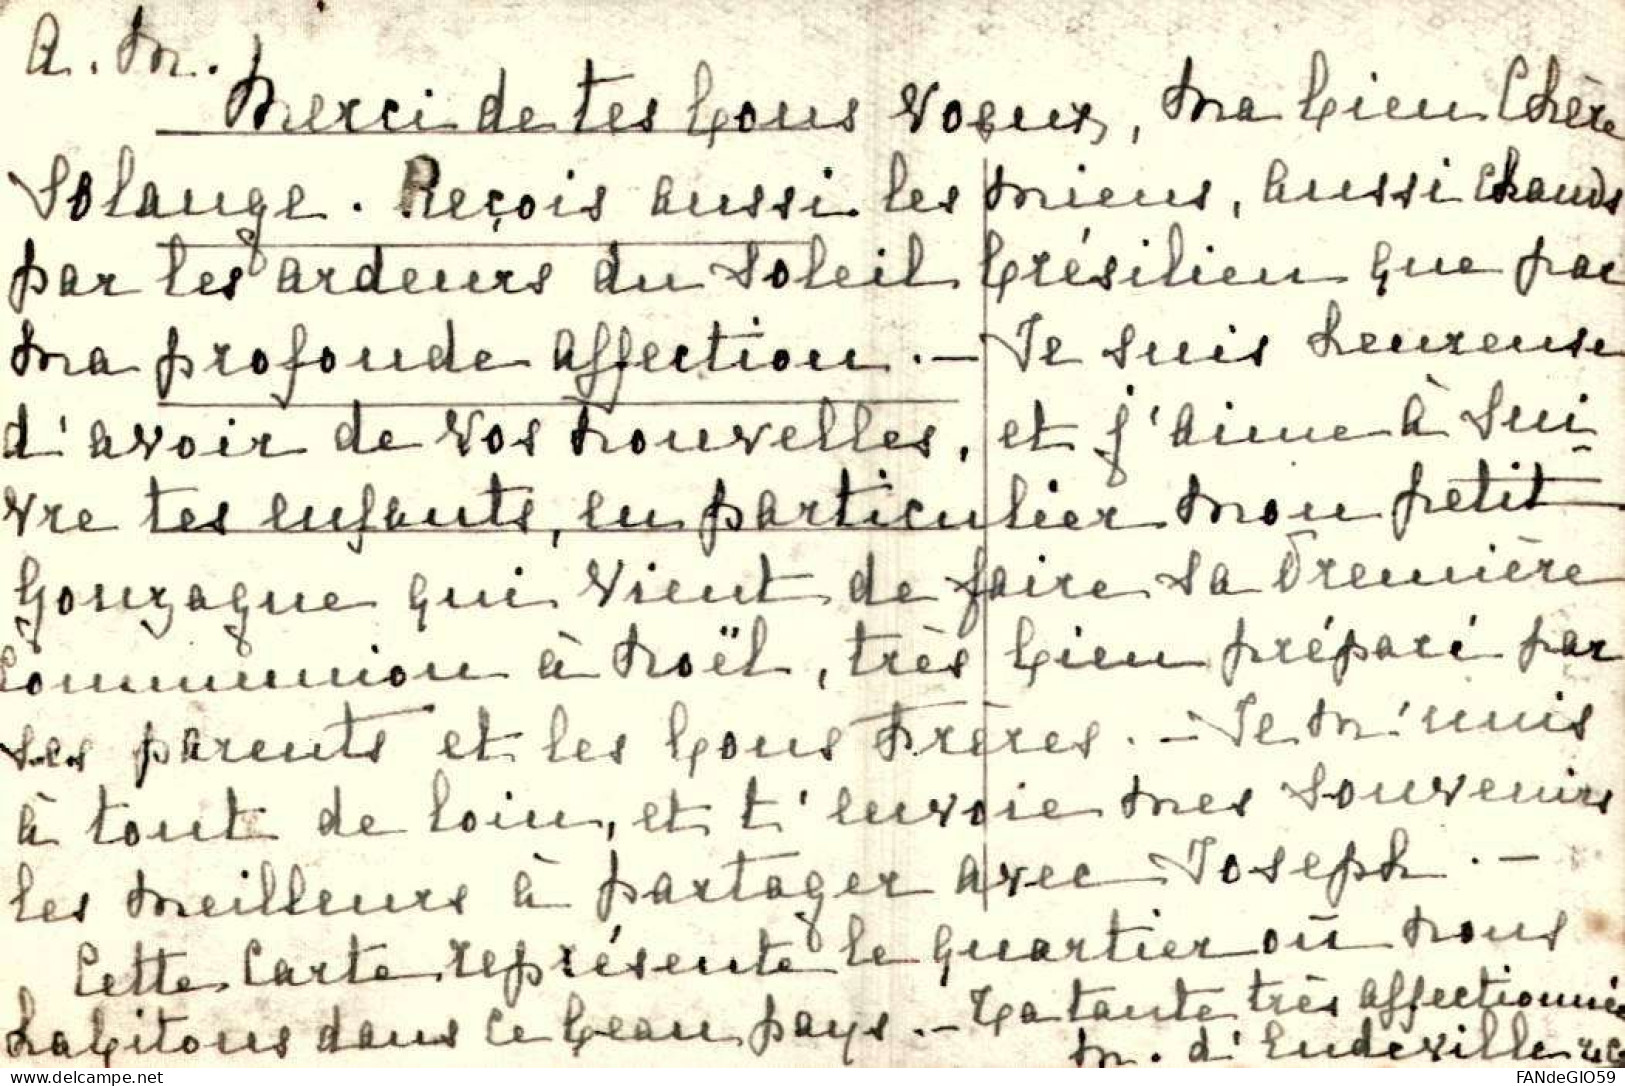 A. M.
Merci de tes bons voeux, ma bien Chère
Solange. Reçois aussi les miens, aussi chauds
par les ardeurs du Soleil brésilien que par
ma profonde affection. — Je suis heureuse
d'avoir de vos nouvelles, et j'aime à sui-
vre tes enfants, en particulier mon petit
Gonzague qui vient de faire sa Première
Communion à Noël, très bien préparé par
ses parents et les bons Frères. — Je m'unis
à tout de loin, et t'envoie mes souvenirs
les meilleurs à partager avec Joseph. —
Cette Carte représente le quartier où nous
habitons dans ce beau pays. — Ta tante très affectionnée
M. d'Eudeville
www.delcampe.net
FANdeGIO59